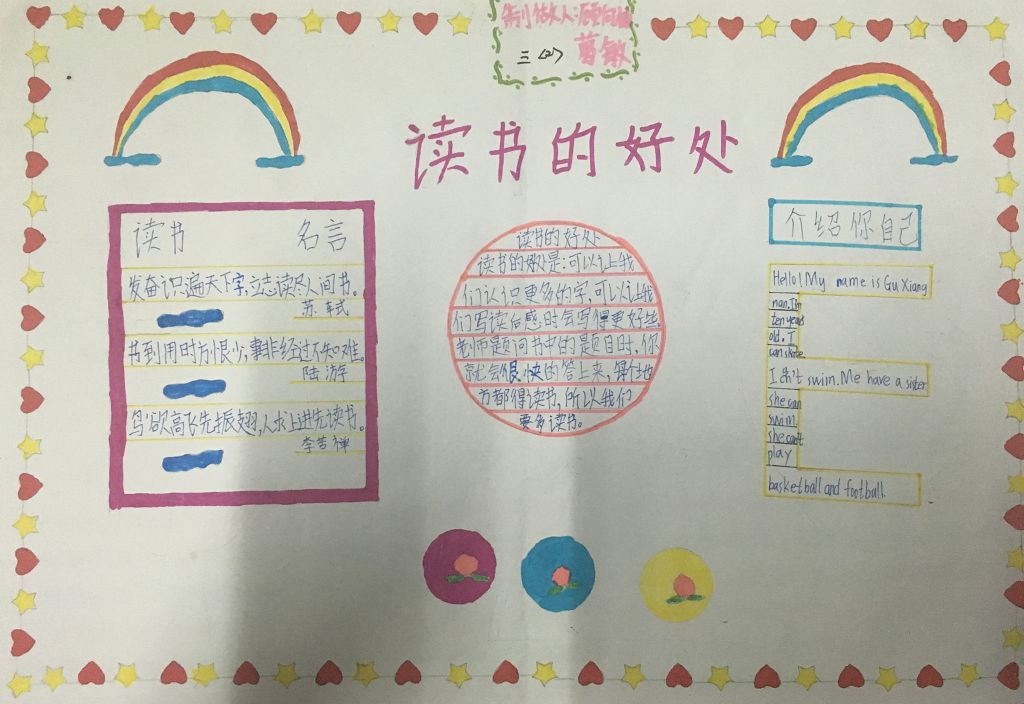 制作人:顾向
三(2) 葛敏
读书的好处
读书 名言
发奋识遍天下字,立志读尽人间书。
苏轼
书到用时方恨少,事非经过不知难。
陆游
鸟欲高飞先振翅,人求上进先读书。
李苦禅
读书的好处
读书的好处是:可以让我
们认识更多的字,可以让我
们写读后感时会写得更好些。
老师题问书中的题目时,你
就会很快的答上来,每个地
方都得读书,所以我们
要多读书。
介绍你自己
Hello! My name is Gu Xiang
nan. I'm
ten years
old. I
can skate
I can't swim. Me have a sister
she can
swim.
she can't
play
basketball and football.